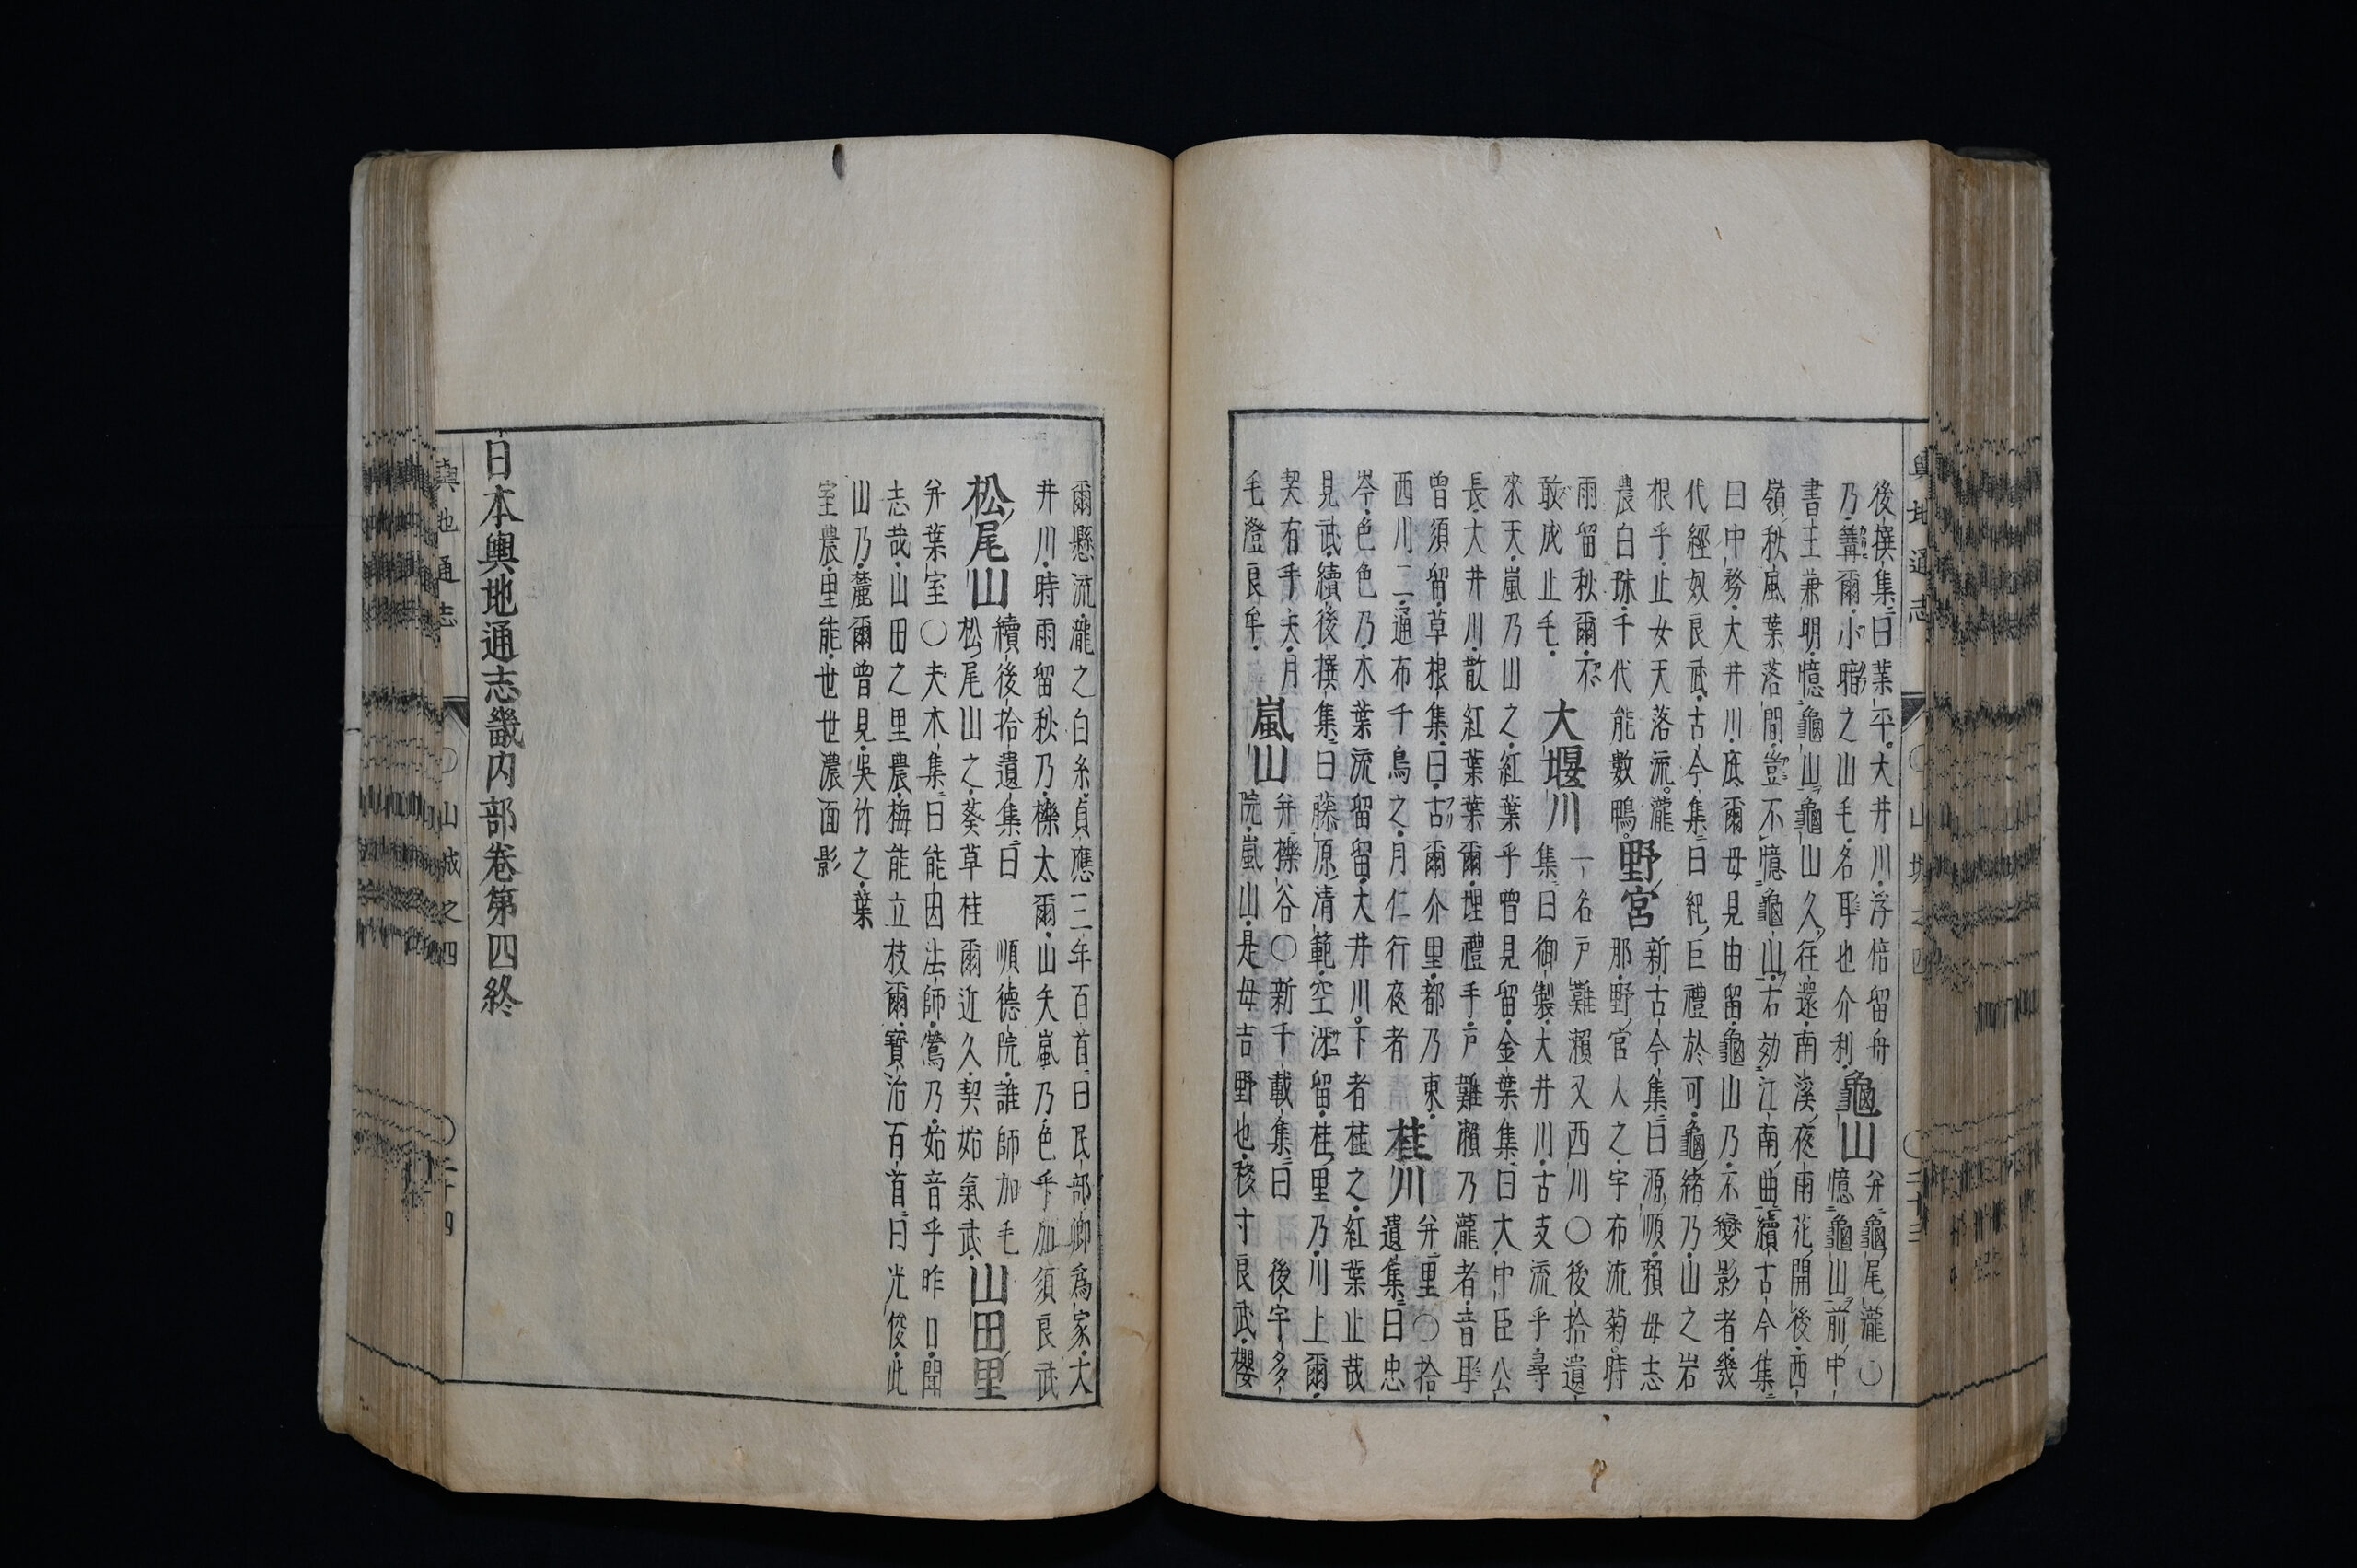 後撰集曰葉乎大井川浮倍留舟
乃篝爾小職之山毛名耶也介利龜山弁龜尾瀧○
書王兼明憶龜山龜山久往還南溪夜雨花開後西
憶龜山前中
嶺秋風葉落間豈不憶龜山右効江南曲續古今集
曰中務大井川底爾毋見由留龜山乃不變影者幾
代經奴良武古今集曰紀巨禮於可龜緒乃山之岩
根乎止女天落流瀧
農白珠千代能數鴨野宮新古今集曰源順賴毋志
那野宮人之宇布流菊時
雨留秋爾不
敢成止毛大堰川一名戸難瀬又西川○後拾遺
集曰御製大井川古支流乎尋
來天嵐乃山之紅葉乎曾見留金葉集曰大中臣公
長大井川散紅葉葉爾埋禮手戸難瀬乃瀧者音耶
曾須留草根集曰古爾介里都乃東
西川二通布千鳥之月仁行夜者桂川弁里○拾
遺集曰忠
岑色色乃木葉流留留大井川下者桂之紅葉止哉
見武續後撰集曰藤原清範空留桂里乃川上爾
契有手夫月
毛澄良牟嵐山弁櫟谷○新千載集曰後宇多
院嵐山是毋吉野也移寸良武櫻
輿地通志　○山城之四　○二十三
爾懸流瀧之白糸貞應三年百首曰民部卿爲家大
井川時雨留秋乃櫟太爾山矢嵐乃色乎加須良武
松尾山續後拾遺集曰順德院誰師加毛
松尾山之葵草桂爾近久契始氣武山田里
弁葉室○夫木集曰能因法師鶯乃始音乎昨日聞
志哉山田之里農梅能立枝爾寶治百首曰光俊此
山乃麓爾曾見呉竹之葉
室農里能世世濃面影
日本輿地通志畿内部卷第四終
輿地通志　○山城之四　○二十四